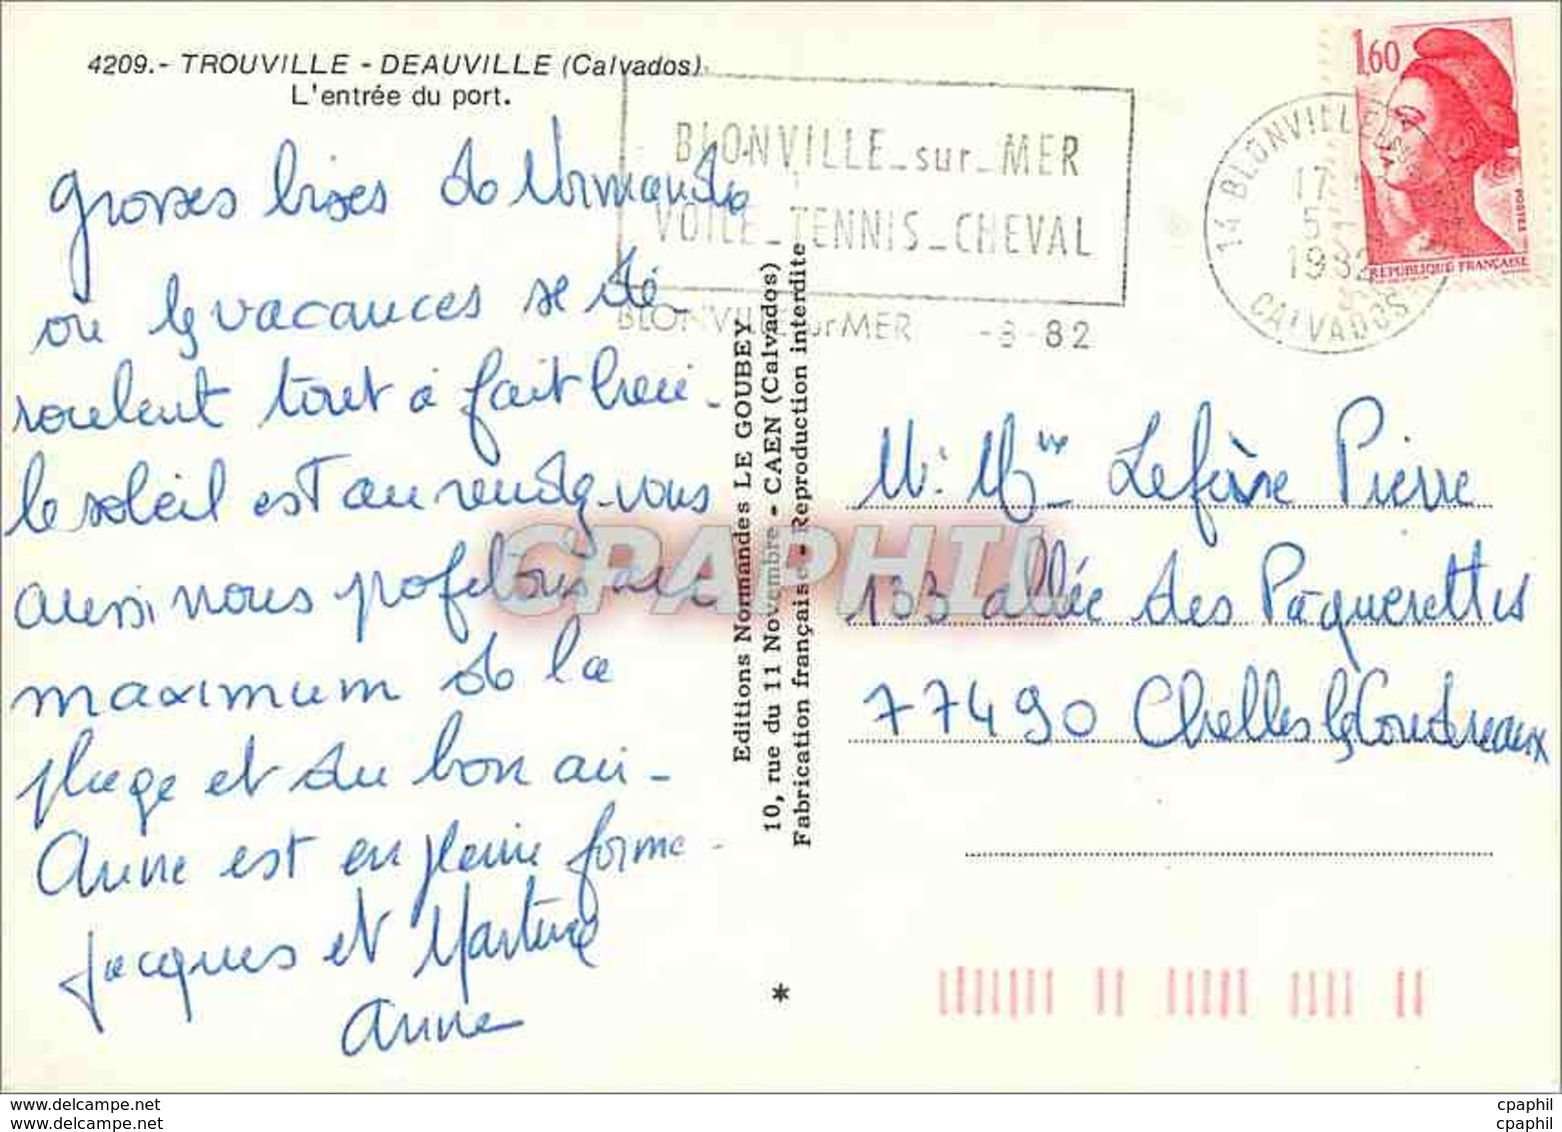 4209.- TROUVILLE - DEAUVILLE (Calvados).
L'entrée du port.
grosses bises de Normandie
où les vacances se dé-
roulent tout à fait bien.
le soleil est au rendez-vous
aussi nous profitons du
maximum de la
plage et du bon air-
Anne est en pleine forme.
Jacques et Martine
Anne
BLONVILLE_sur_MER
VOILE_TENNIS_CHEVAL
BLONVILLE sur MER -8-82
14 BLONVILLE S
17
5-
1982
CALVADOS
1,60
POSTES
REPUBLIQUE FRANÇAISE
Editions Normandes LE GOUBEY
10, rue du 11 Novembre - CAEN (Calvados)
Fabrication française - Reproduction interdite
CPAPHIL
Mr Mme Lefèvre Pierre
133 allée des Pâquerettes
77490 Chelles le Coudreaux
*
https://www.cpaphil.com
cpaphil
cpaphil